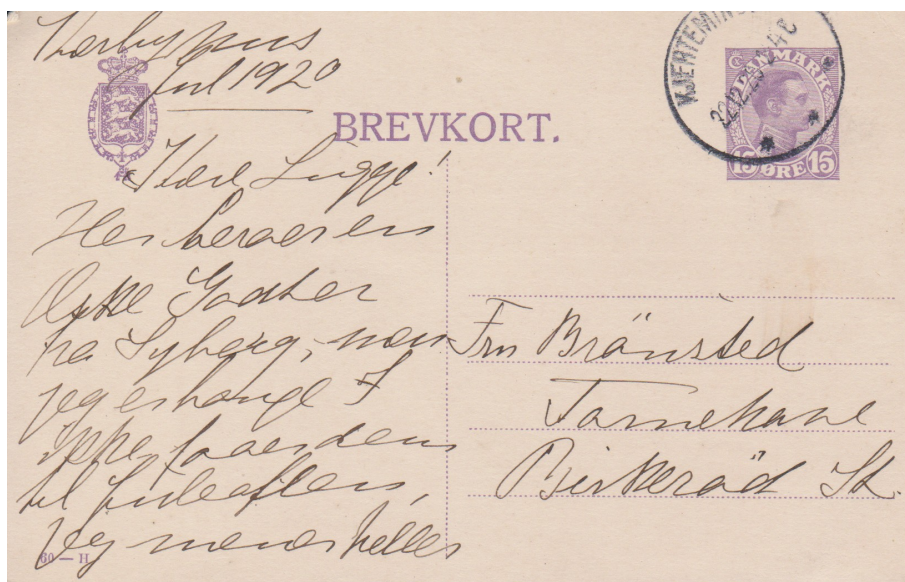 Kærbyhus
Jul 1920
BREVKORT.
KJERTEMIN
22.12.20
DANMARK
15 ØRE 15
Kære Lugge!
Her kommer en
Æske Godter
fra Syberg, men
jeg er bange I
ikke faaer dem
til Juleaften,
jeg mener heller
Fru Brönsted
Birkeröd St.
60 — H